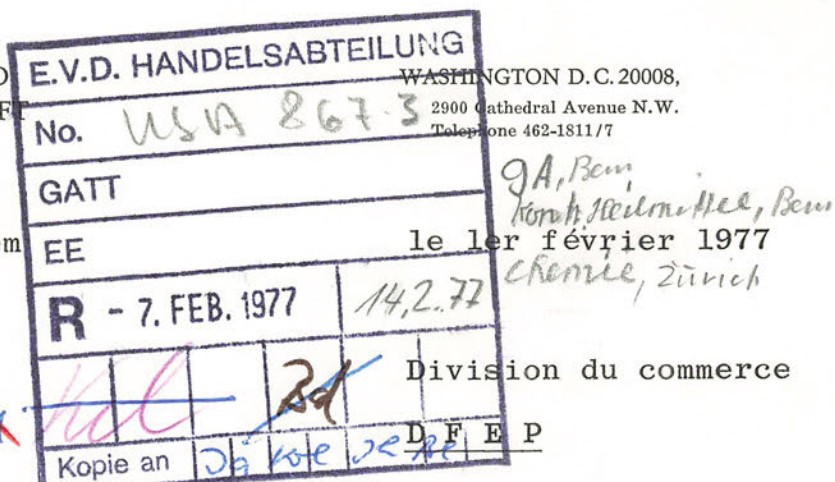 E.V.D. HANDELSABTEILUNG
No. USA 867.3
GATT
EE
R - 7. FEB. 1977 14.2.77
Kopie an
WASHINGTON D.C. 20008,
2900 Cathedral Avenue N.W.
Telephone 462-1811/7
Bern
Heilmittel, Bern
le 1er février 1977
Chemie, Zürich
Division du commerce
D F E P